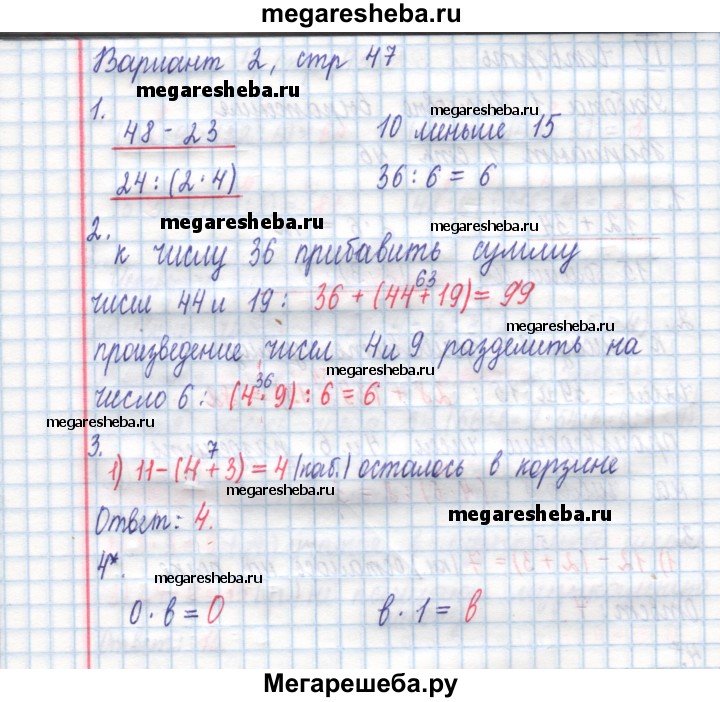 megaresheba.ru
Вариант 2, стр 47
megaresheba.ru
1.
megaresheba.ru
48 - 23    10 меньше 15
megaresheba.ru
24 : (2 · 4)    36 : 6 = 6
megaresheba.ru
megaresheba.ru
2.
к числу 36 прибавить сумму
63
чисел 44 и 19 : 36 + (44 + 19) = 99
megaresheba.ru
произведение чисел 4 и 9 разделить на
megaresheba.ru
36
число 6 : (4 · 9) : 6 = 6
megaresheba.ru
megaresheba.ru
3.
7
1) 11 - (4 + 3) = 4 (каб.) осталось в корзине
megaresheba.ru
Ответ: 4.
megaresheba.ru
4*.
megaresheba.ru
0 · в = 0    в · 1 = в
megaresheba.ru
Мегарешеба.ру